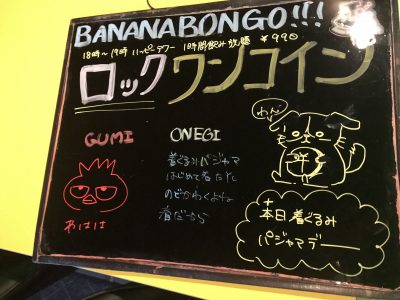 BANANABONGO!!!
18時〜19時 ハッピーアワー 1時間飲み放題 ¥990
ロックワンコイン
GUMI
ONEGI
わん
着ぐるみパジャマ
はじめて着たけど
のどかわくよね
春だから
あはは
本日着ぐるみ
パジャマデー